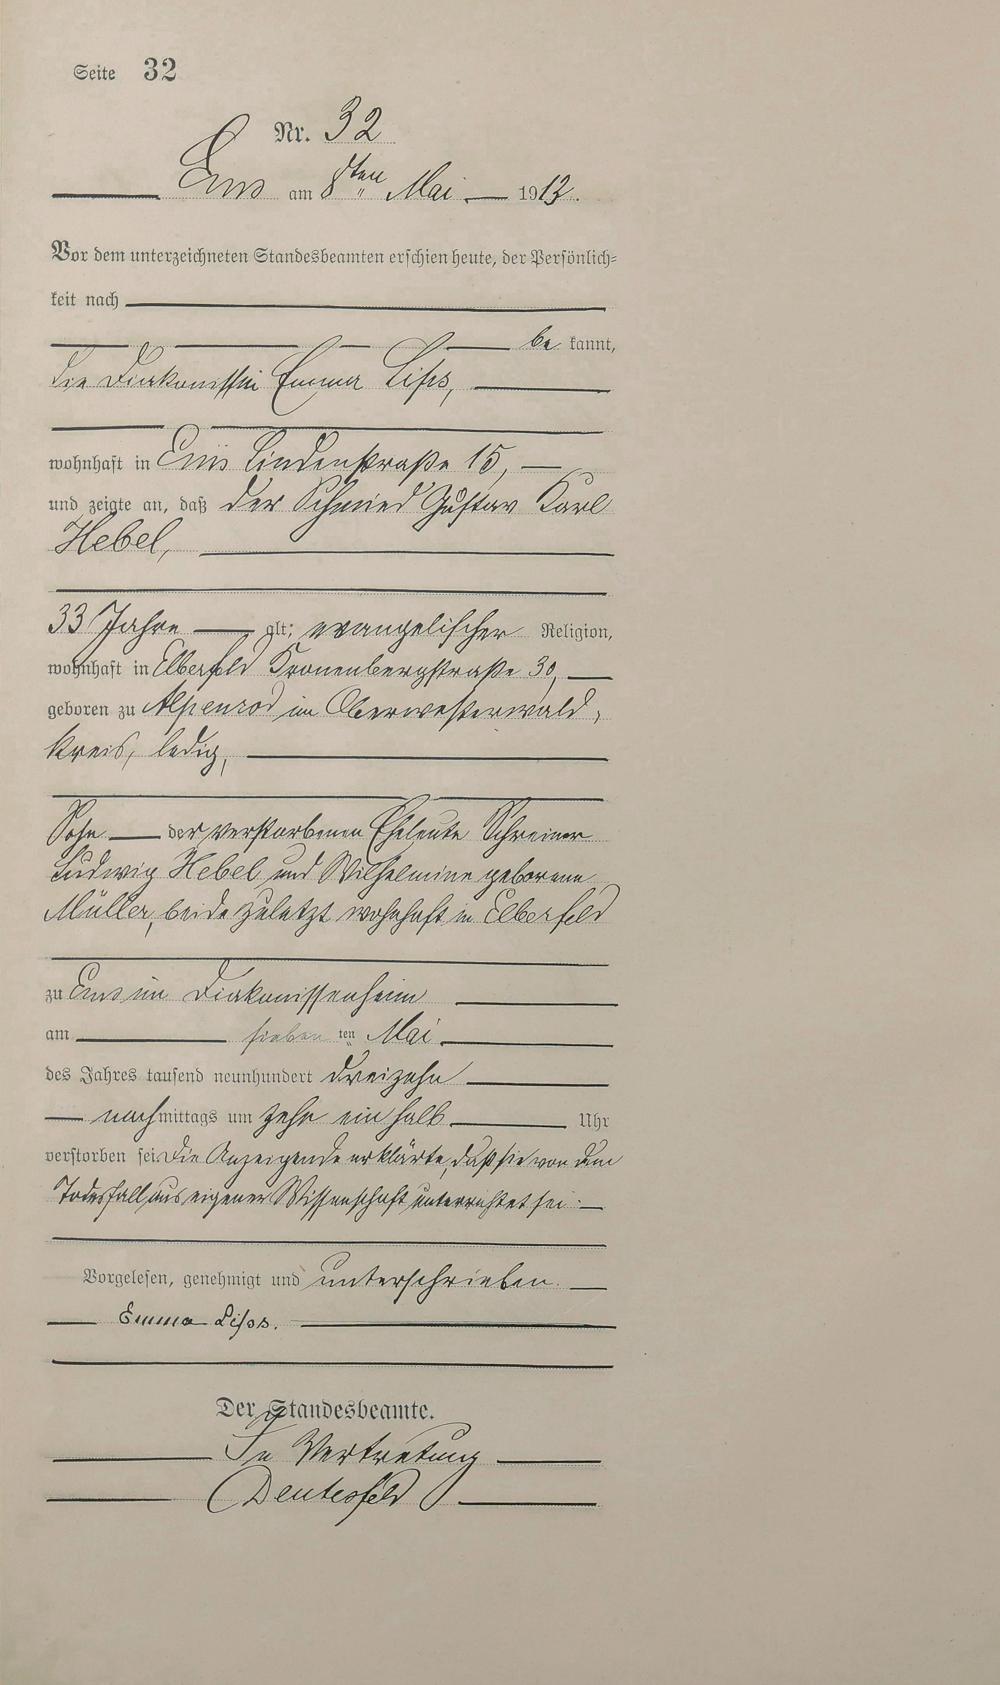 Seite 32
Nr. 32
Ems am 8ten Mai 1913.
Vor dem unterzeichneten Standesbeamten erschien heute, der Persönlich=
keit nach
be kannt,
die Diakonissin Emma Lips,
wohnhaft in Ems Lindenstraße 15,
und zeigte an, daß der Schmied Gustav Karl
Hebel,
33 Jahre alt, evangelischer Religion,
wohnhaft in Elberfeld Kronenbergstraße 30,
geboren zu Alpenrod im Oberwesterwald-
kreis, ledig,
Sohn der verstorbenen Eheleute Schreiner
Ludwig Hebel und Wilhelmine geborene
Müller, beide zuletzt wohnhaft in Elberfeld
zu Ems im Diakonissenheim
am sieben ten Mai
des Jahres tausend neunhundert dreizehn
nachmittags um zehn ein halb Uhr
verstorben sei. Die Anzeigende erklärte, daß sie von dem
Todesfall aus eigener Wissenschaft unterrichtet sei.
Vorgelesen, genehmigt und unterschrieben.
Emma Lips.
Der Standesbeamte.
In Vertretung